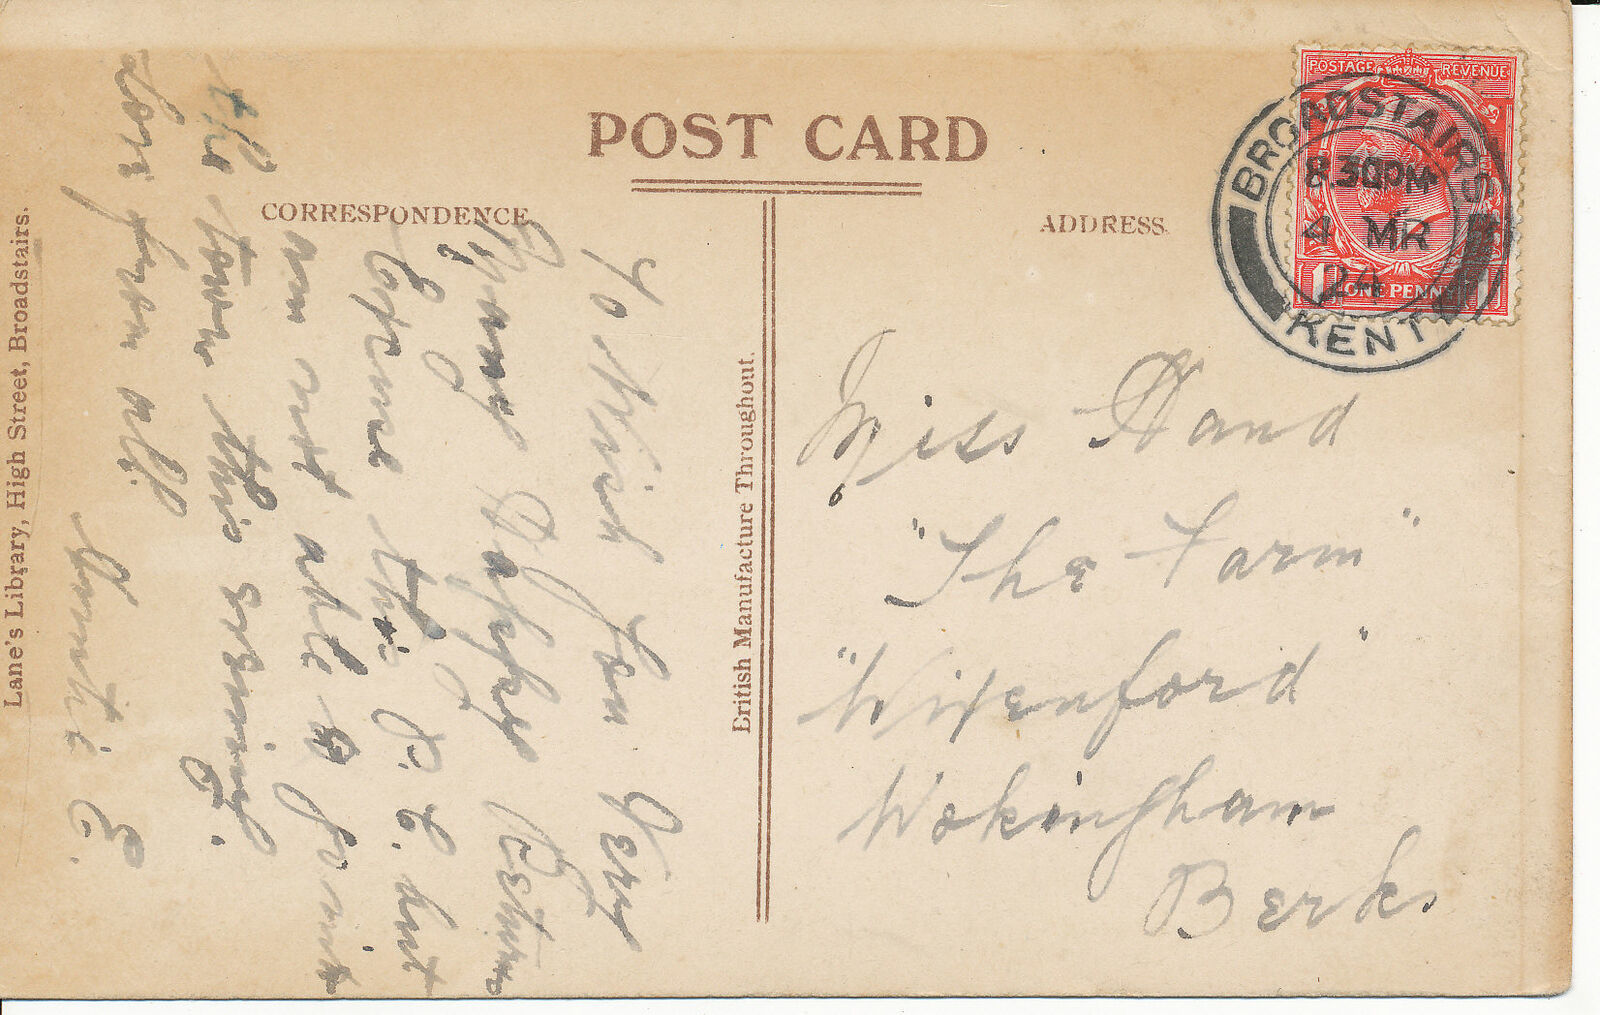 POST CARD
CORRESPONDENCE
ADDRESS
To Wish you Very
Many Happy Returns
Excuse this P.C. but
am not able to
the town this evening.
Love from all.
Auntie E.
British Manufacture Throughout.
Lane's Library, High Street, Broadstairs.
POSTAGE REVENUE
ONE PENNY
BROADSTAIRS
8.30PM
4 MR
24
KENT
Miss Hand
"The Farm"
"Wixenford"
Wokingham
Berks.